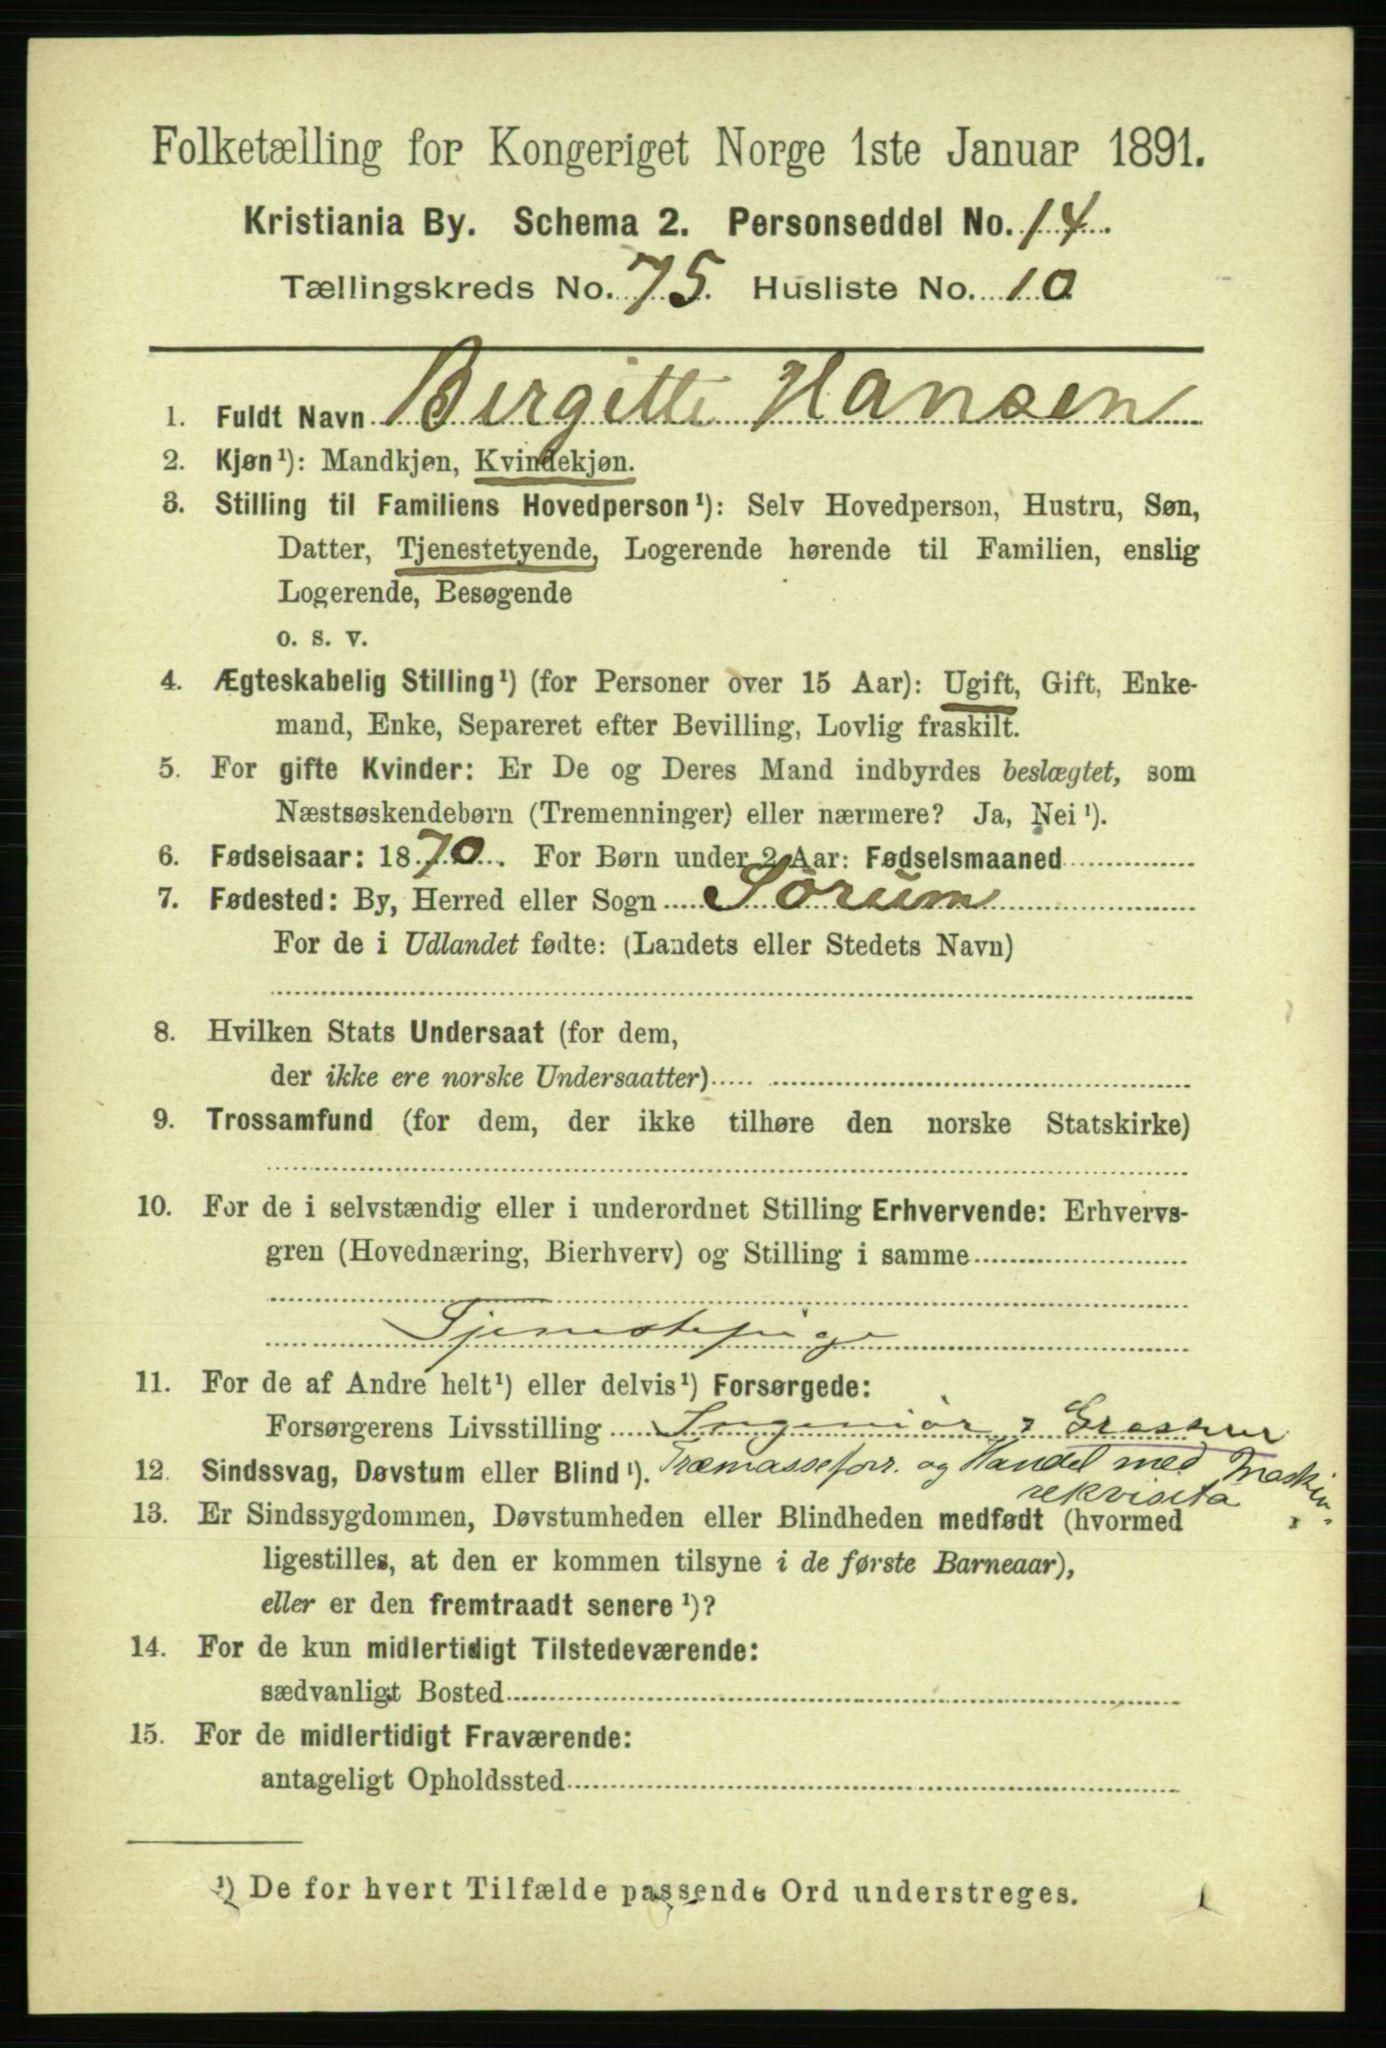 Folketælling for Kongeriget Norge 1ste Januar 1891.
Kristiania By. Schema 2. Personseddel No. 14.
Tællingskreds No. 75. Husliste No. 10
1. Fuldt Navn Birgitte Hansen
2. Kjøn¹): Mandkjøn, Kvindekjøn.
3. Stilling til Familiens Hovedperson¹): Selv Hovedperson, Hustru, Søn,
Datter, Tjenestetyende, Logerende hørende til Familien, enslig
Logerende, Besøgende
o. s. v.
4. Ægteskabelig Stilling¹) (for Personer over 15 Aar): Ugift, Gift, Enke-
mand, Enke, Separeret efter Bevilling, Lovlig fraskilt.
5. For gifte Kvinder: Er De og Deres Mand indbyrdes beslægtet, som
Næstsøskendebørn (Tremenninger) eller nærmere? Ja, Nei¹).
6. Fødselsaar: 1870. For Børn under 2 Aar: Fødselsmaaned
7. Fødested: By, Herred eller Sogn Sørum
For de i Udlandet fødte: (Landets eller Stedets Navn)
8. Hvilken Stats Undersaat (for dem,
der ikke ere norske Undersaatter)
9. Trossamfund (for dem, der ikke tilhøre den norske Statskirke)
10. For de i selvstændig eller i underordnet Stilling Erhvervende: Erhvervs-
gren (Hovednæring, Bierhverv) og Stilling i samme
Tjenestepige
11. For de af Andre helt¹) eller delvis¹) Forsørgede:
Forsørgerens Livsstilling Ingeniør,
12. Sindssvag, Døvstum eller Blind¹). Træmasseforr. og Handel med Maskin-
rekvisita
13. Er Sindssygdommen, Døvstumheden eller Blindheden medfødt (hvormed
ligestilles, at den er kommen tilsyne i de første Barneaar),
eller er den fremtraadt senere¹)?
14. For de kun midlertidigt Tilstedeværende:
sædvanligt Bosted
15. For de midlertidigt Fraværende:
antageligt Opholdssted
¹) De for hvert Tilfælde passende Ord understreges.